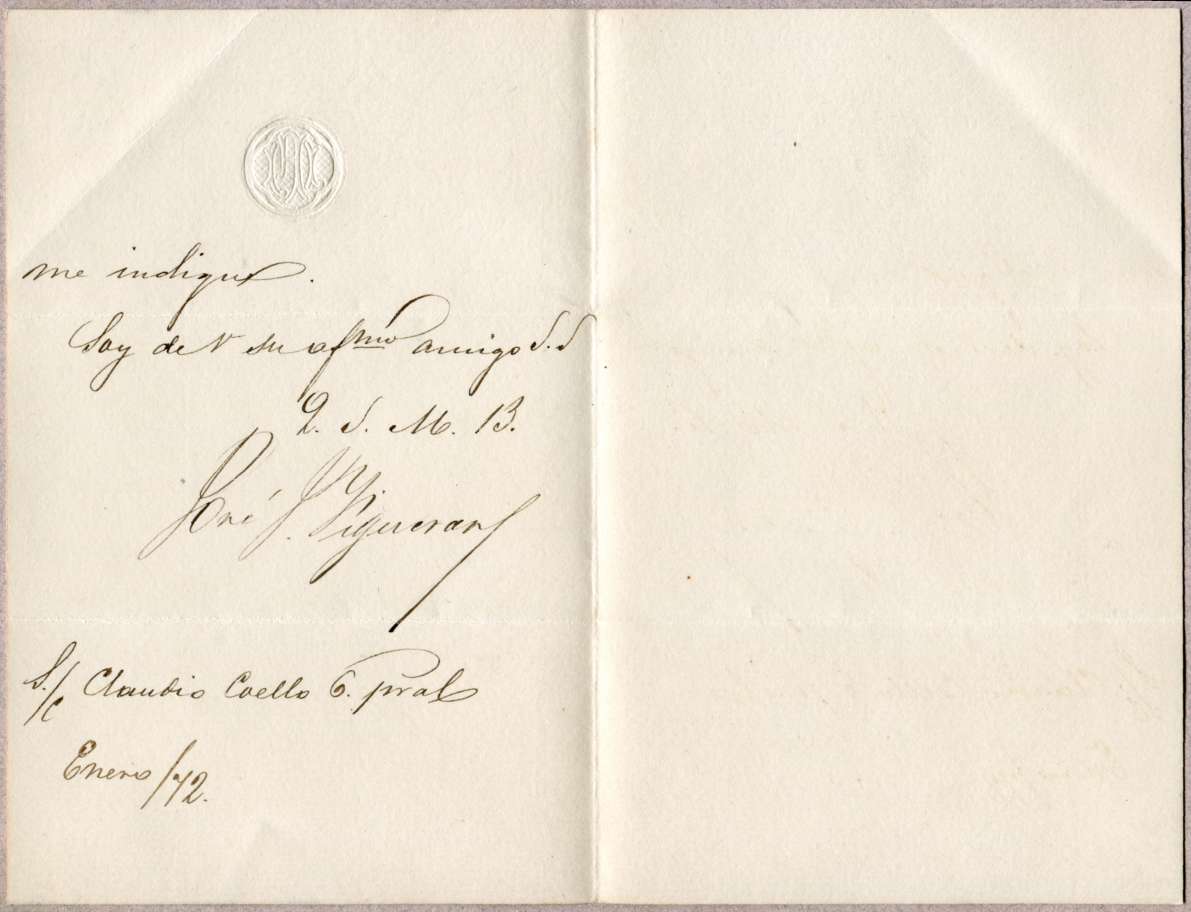 me indique.
Soy de V su afmo amigo S.S
Q. S. M. B.
José J. Figueras
S./c Claudio Coello 6. pral
Enero/72.